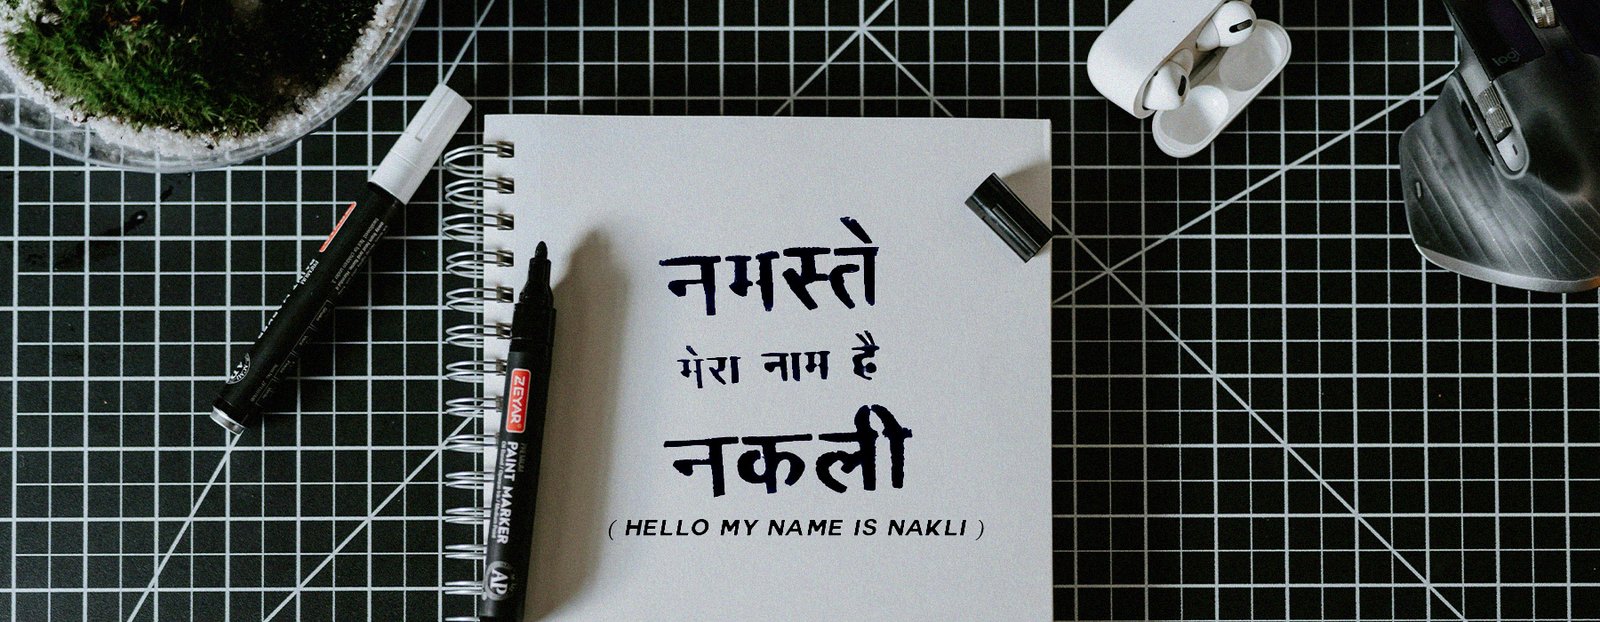 नमस्ते
मेरा नाम है
नकली
( HELLO MY NAME IS NAKLI )
ZEYAR
PREMIUM
PAINT MARKER
AP
logi